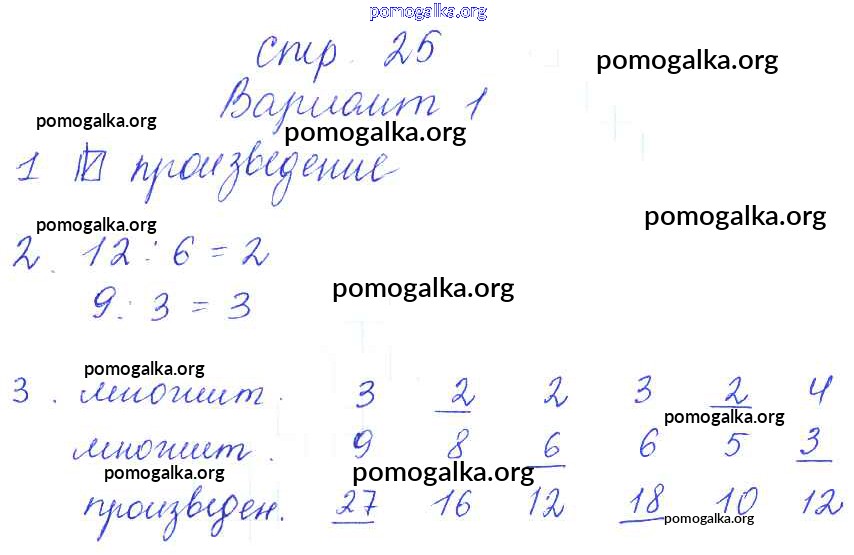 pomogalka.org
стр. 25
pomogalka.org
Вариант 1
pomogalka.org
pomogalka.org
1 ☑ произведение
pomogalka.org
pomogalka.org
2. 12 : 6 = 2
pomogalka.org
9 : 3 = 3
pomogalka.org
3. множит. 3 2 2 3 2 4
pomogalka.org
множит. 9 8 6 6 5 3
pomogalka.org
pomogalka.org
произведен. 27 16 12 18 10 12
pomogalka.org